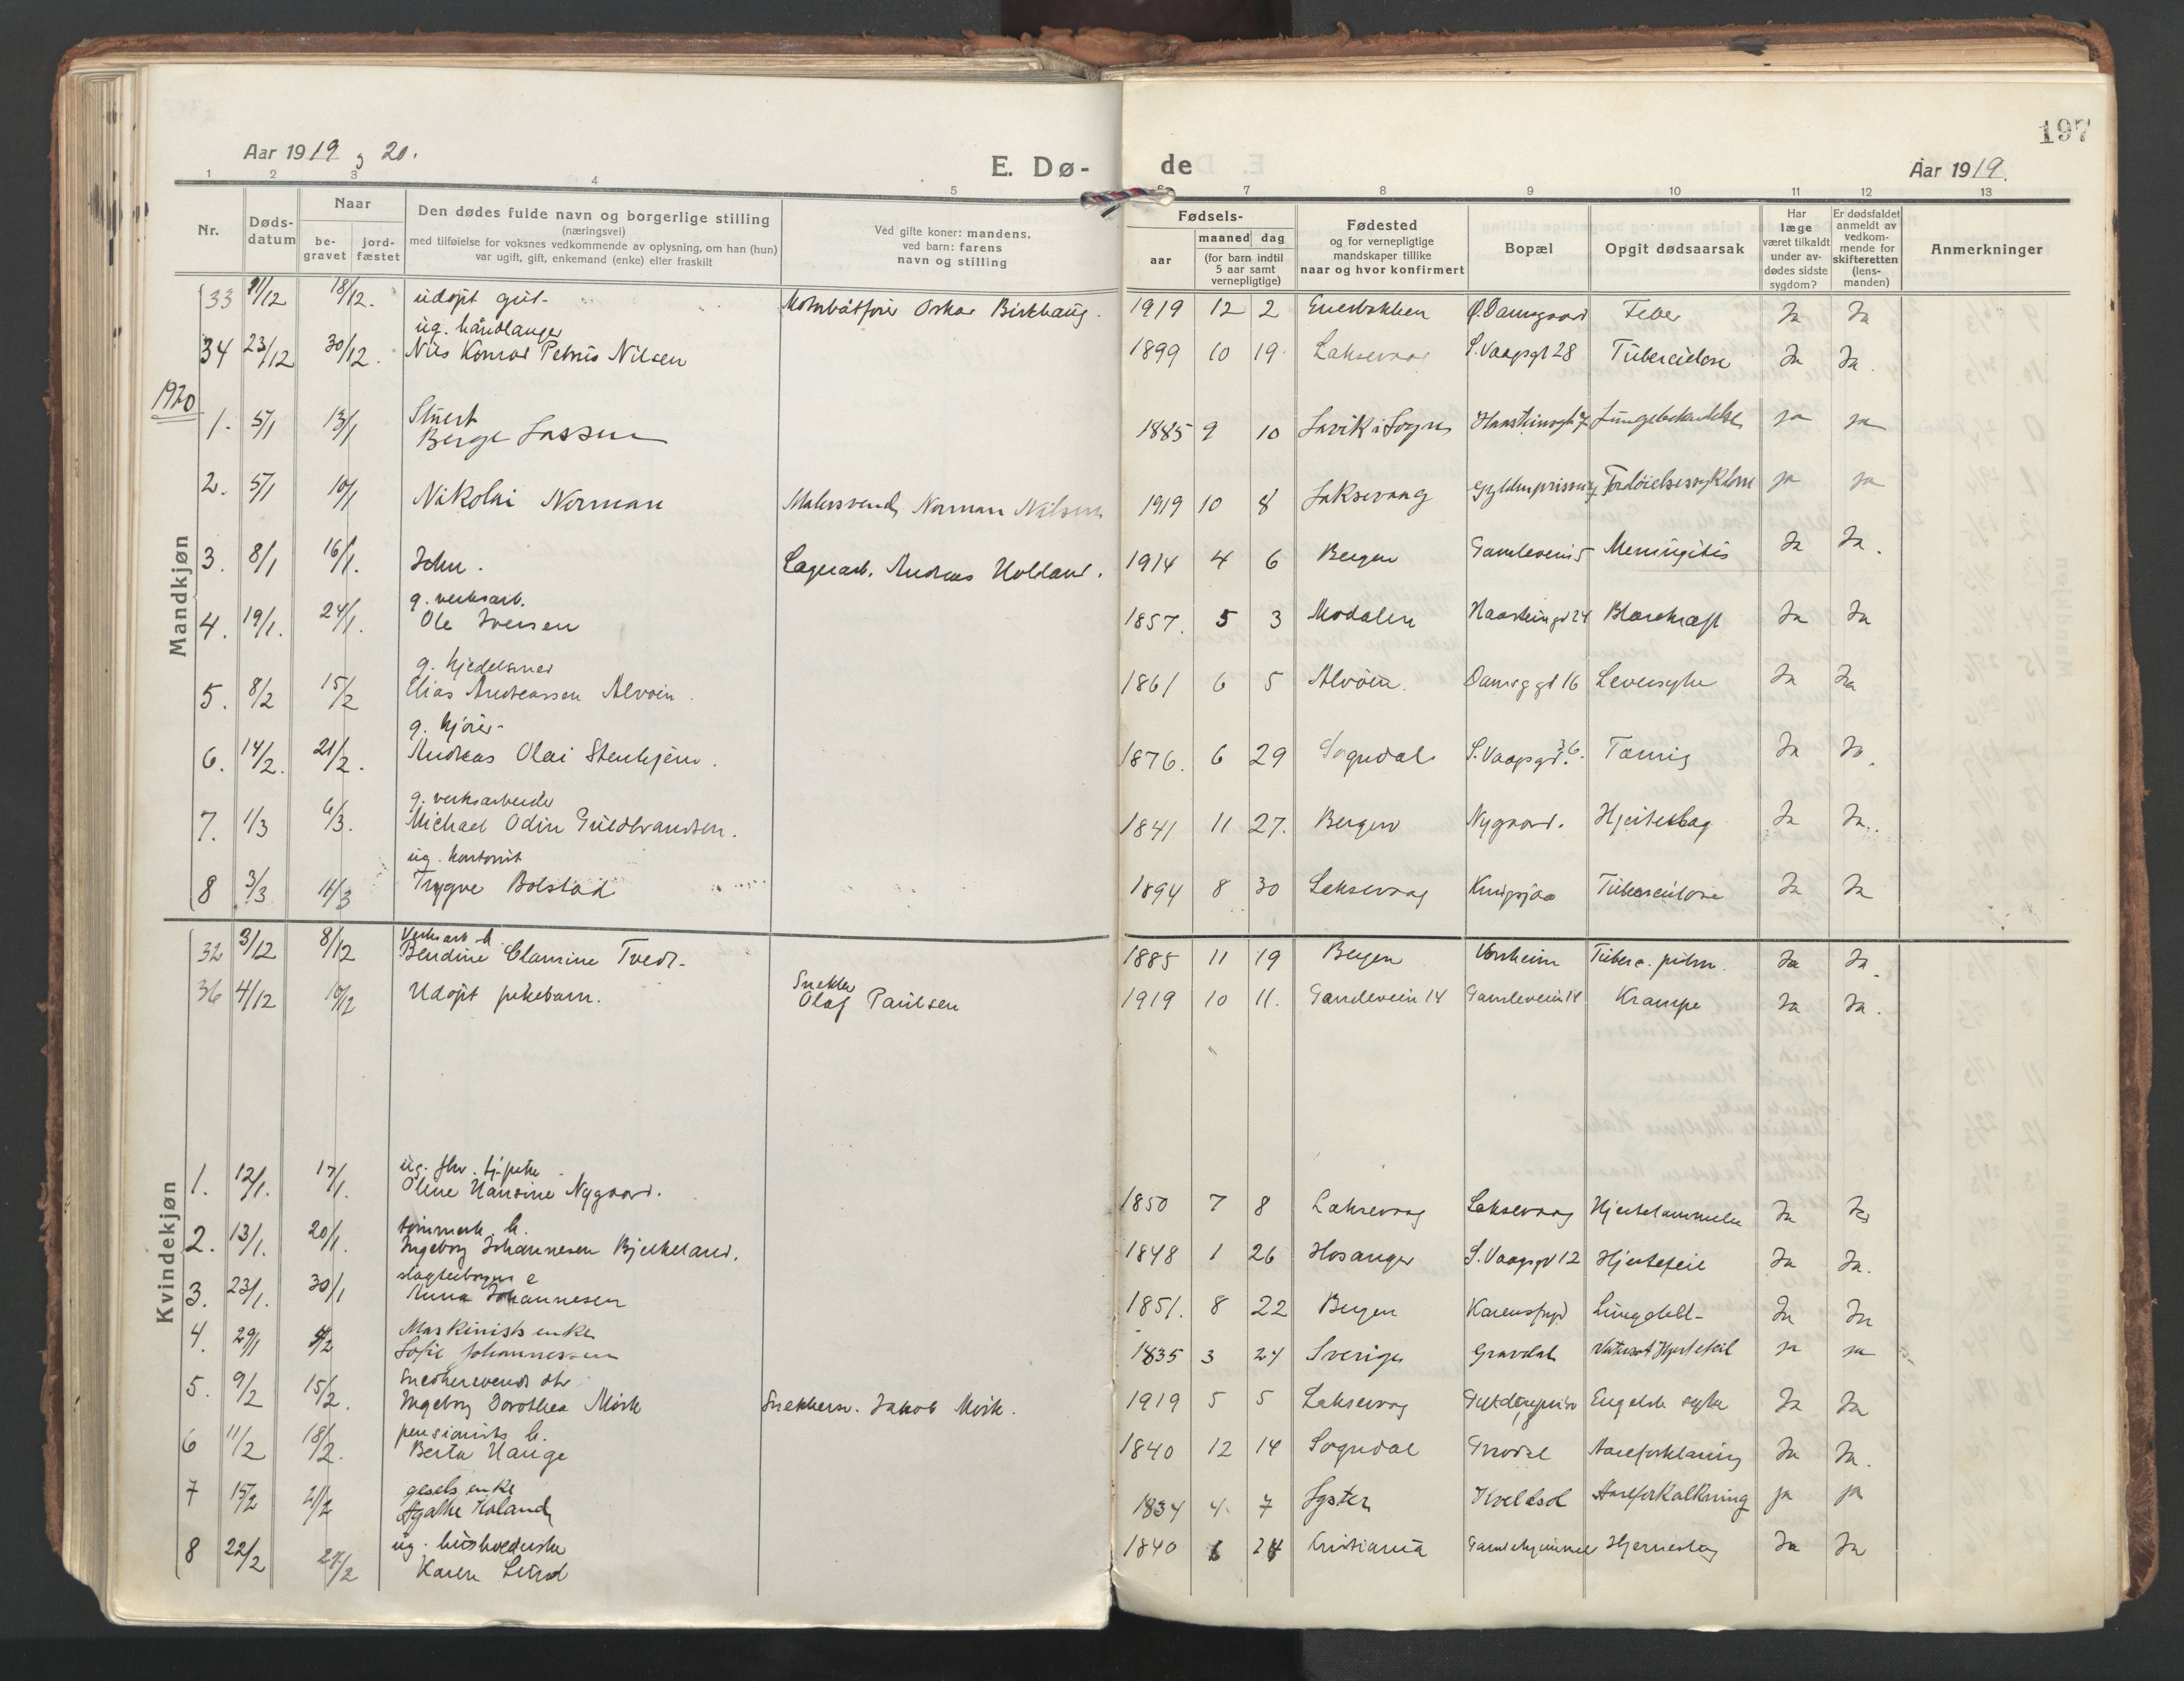 Aar 1919 og 20.
E. Dø-
de
Aar 1919.
197
1 2 3 4 5 6 7 8 9 10 11 12 13
Nr.
Døds-
datum
Naar
be-
gravet
jord-
fæstet
Den dødes fulde navn og borgerlige stilling
(næringsvei)
med tilføielse for voksnes vedkommende av oplysning, om han (hun)
var ugift, gift, enkemand (enke) eller fraskilt
Ved gifte koner: mandens,
ved barn: farens
navn og stilling
Fødsels-
aar
maaned dag
(for barn indtil
5 aar samt
vernepligtige)
Fødested
og for vernepligtige
mandskaper tillike
naar og hvor konfirmert
Bopæl
Opgit dødsaarsak
Har
læge
været tilkaldt
under av-
dødes sidste
sygdom?
Er dødsfaldet
anmeldt av
vedkom-
mende for
skifteretten
(lens-
manden)
Anmerkninger
Mandkjøn
33 11/12 18/12. udøpt gut- Oskar Birkhaug. 1919 12 2 Ø. Damsgaard Feber Ja Ja
ug. håndlanger
34 23/12 30/12. Nils Konrad Petrus Nilsen 1899 10 19 Laksevaag S. Vaagsgt 28 Tuberculose Ja Ja.
1920
Stuert
1. 5/1 13/1 Berge Lassen 1885 9 10 Lavik i Sogn ja ja
2. 5/1 10/1 Nikolai Norman Malersvend Norman Nilsen 1919 10 8 Laksevaag Fordøielsessykdom ja ja
3. 8/1 16/1. John. Lagerarb. Andreas 1914 4 6 Bergen Gamleveien 5 Meningitis Ja Ja.
g. verksarb.
4. 19/1. 24/1. Ole Iversen 1857. 5 3 Modalen Haasteinsgt 24 Blærekræft Ja Ja
g. kjedelsmed
5. 8/2 15/2 Elias Andreassen Alvøen. 1861 6 5 Alvøen. Damsg gt 16 Leversyke Ja Ja
g. kjører-
6. 14/2. 21/2. Andreas Olai Stenhjem. 1876. 6 29 Sogndal S. Vaagsgt. 36. Ja Ja.
g. verksarbeider
7. 1/3 6/3. Michael Odin Guldbrandsen. 1841 11 27. Bergen Nygaard. Hjerteslag Ja Ja.
ug. kontorist
8 3/3 11/3 Trygve Bolstad 1894 8 30 Laksevaag Tuberculose Ja Ja
Kvindekjøn
Verksarb. h.
32 3/12 8/12 Bendine Clamine Tvedt- 1885 11 19 Bergen Tuberc. pulm. Ja Ja.
Snekker
36 4/12 10/12 Udøpt pikebarn. Olaf Paulsen 1919 10 11. Gamleveien 14 Gamleveien 14 Krampe Ja Ja.
ug. fhv. tj. pike
1. 12/1. 17/1. Oline Hansine Nygaard. 1850 7 8 Laksevaag Laksevaag Hjertelammelse Ja Ja
tømmerm. h.
2. 13/1. 20/1. Ingeborg Johannesen Bjelkeland. 1848 1 26 Hosanger S. Vaagsgt 12 Hjertefeil Ja Ja.
slagterborgers e
3. 23/1. 30/1 Anna Johannesen 1851. 8 22 Bergen Ja Ja
Maskinists enke
4. 29/1 4/2 Sofie Johannessen 1835 3 24 Sverige Gravdal Hjertefeil ja ja
Snedkersvends dtr
5. 9/2 15/2. Ingeborg Dorothea Mørk Snekkersv. Jakob Mørk. 1919 5 5 Laksevaag Engelsk syke Ja Ja
pensionists h.
6 11/2 18/2. Berta Hauge 1840 12 14 Sogndal Aareforkalkning Ja Ja.
gesels enke
7 15/2 21/2 Agathe Koland 1834 4. 7 Lyster Aareforkalkning ja ja
ug. husholderske
8 22/2 27/2 Karen Lund 1840 6 24 Kristiania Hjerneslag Ja Ja